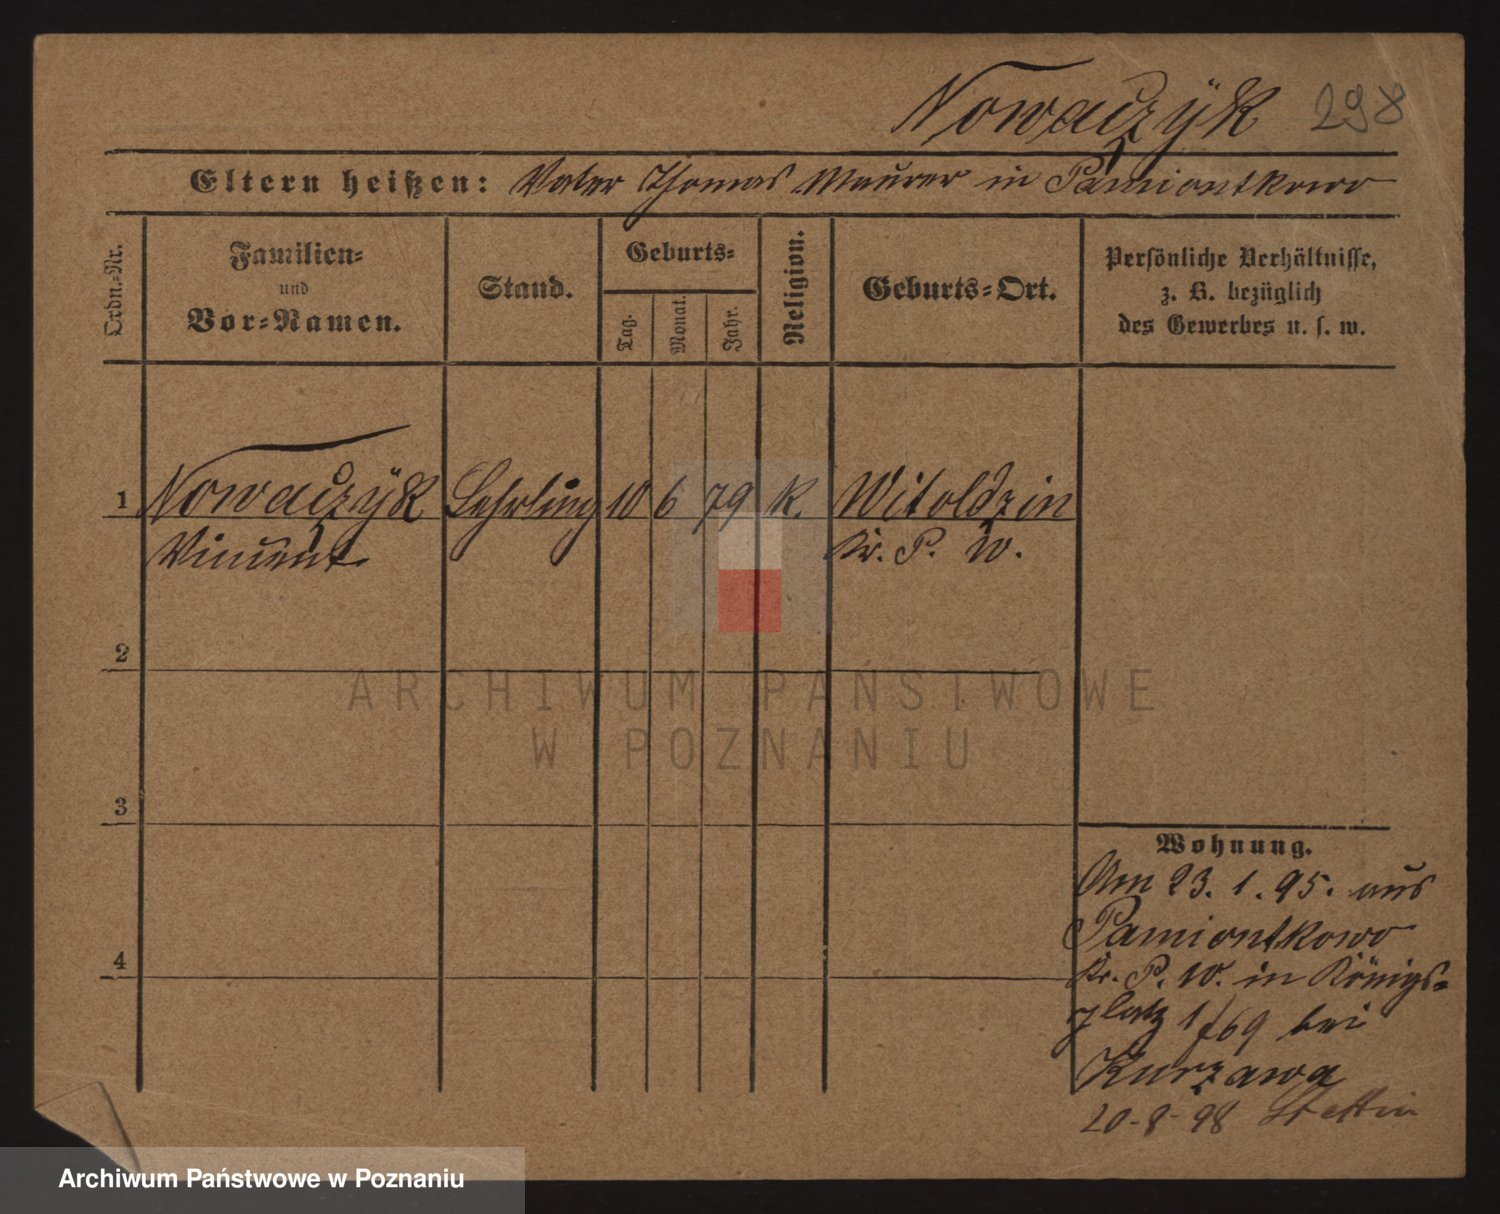 Nowaczÿk 298
Eltern heißen: Vater Thomas Maurer in Pamiontkowo
Ordn.-Nr.
Familien-
und
Vor-Namen.
Stand.
Geburts-
Tag.
Monat.
Jahr.
Religion.
Geburts-Ort.
Persönliche Verhältnisse,
z. B. bezüglich
des Gewerbes u. s. w.
1 Nowaczÿk Lehrling 10 6 79 K. Witoldzin
Vincent Kr. P. W.
2
3
4
Wohnung.
Am 23. 1. 95. aus
Pamiontkowo
Kr. P. W. in Königs-
platz 1/69 bei
Kurzawa
20-8-98 Stettin
ARCHIWUM PAŃSTWOWE
W POZNANIU
Archiwum Państwowe w Poznaniu